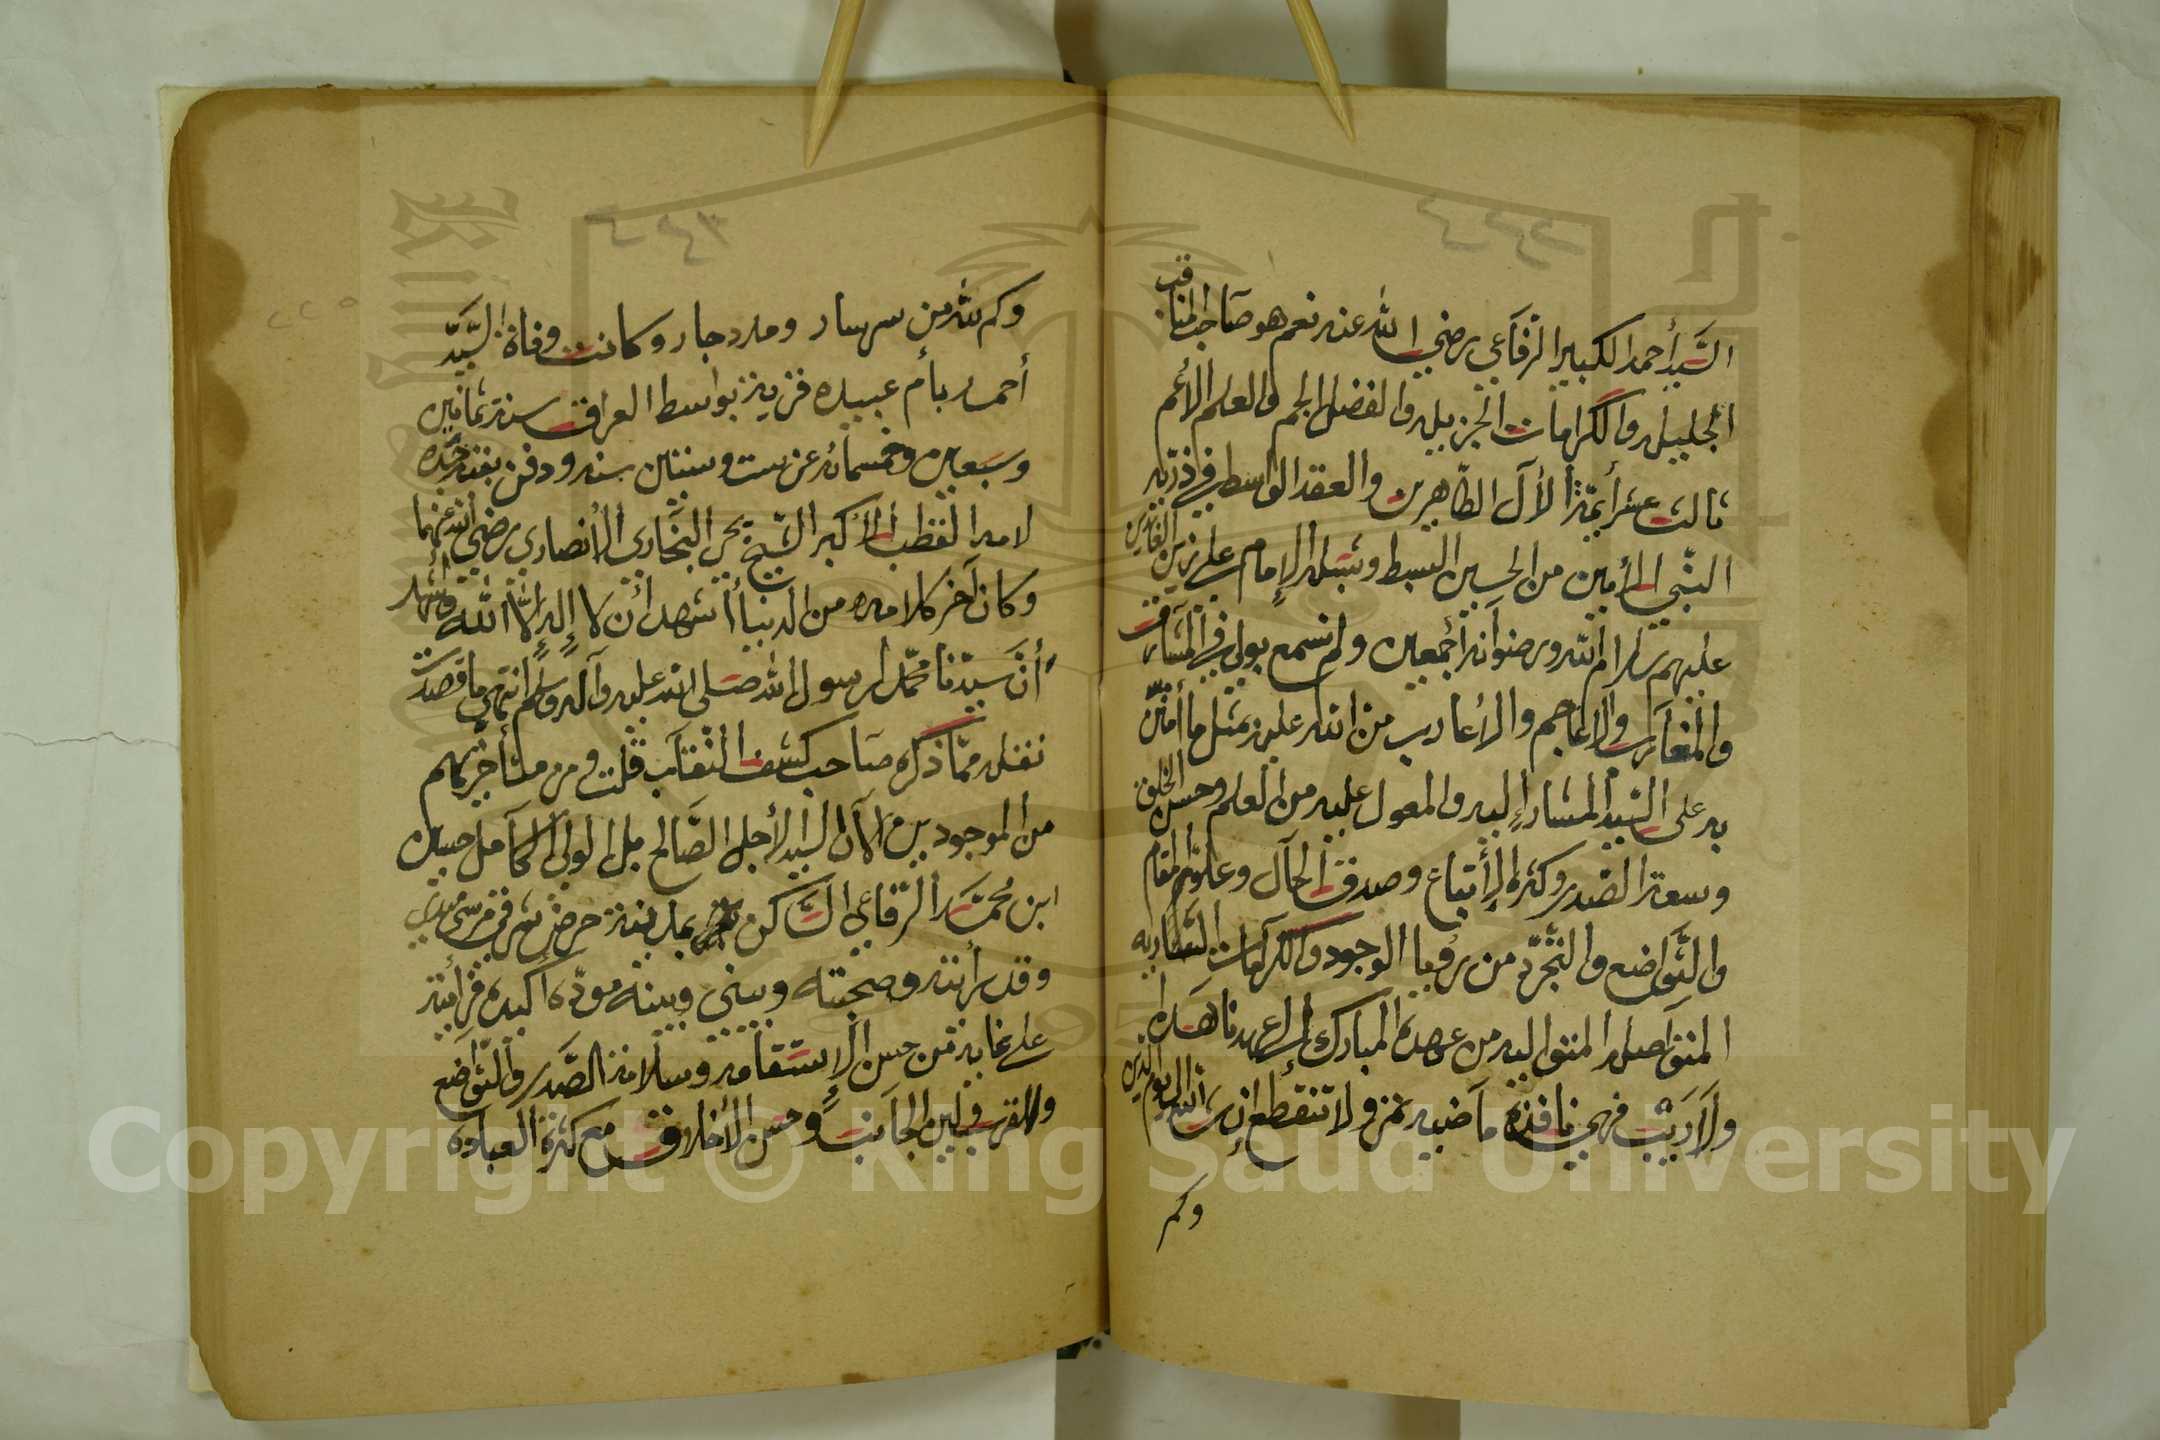 السَّيد أحمد الكبير الرفاعي رضي الله عنه نعم هو صاحب المناقب
الجليله والكرامات الجزيله والفضل الجم والعلم الأعم
ثالث عشر أيمّة الآل الطّاهرين والعقد الواسط في ذرّية
النبّي الأمين من الحسين السبط وشبله الإمام علي زين العابدين
عليهم سلام الله ورضوانه أجمعين ولم نسمع بولي في المشارق
والمغارب والأعاجم والأعارب من الله عليه بمثل ما أمتنّ
به على السّيد المشار إليه والمعول عليه من العلم وحسن الخلق
وسعة الصّدر وكثرة الأتباع وصدق الحال وعلو المقام
والتَّواضع والتّجرّد من رؤيا الوجود والكرامات
المتواصله المتواليه من عهده المبارك إلى عهدنا هذا
ولا ريب فهي نافذة ماضيه لا تنقطع إن شاء الله إلى يوم الدين
وكم
وكم لله من وكانت وفاة السّيد
أحمد بأم عبيده قرية بواسط العراق سنة ثمانين
وسبعين وخمسمائه عن ست وستين سنه ودفن بقبة جدّه
لامه القطب الأكبر الشّيخ يحي النجاري الأنصاري رضي الله عنهما
وكان آخر كلامه من الدنيا أشهد أن لا إله إلاّ الله وأشهد
أنّ سيّدنا محمّدا رسول الله صلى الله عليه وآله وسلم انتهى ما قصدت
نقله ممّا ذكره صاحب كشف النقاب قلت ومن متأخريهم
من الموجودين الآن السيد الأجل الصّالح بل الولي الكامل حسين
ابن محمّد الرّفاعي السّاكن بمدينة
وقد رأيته وصحبته وبيني وبينه مودّة أكيده فرأيته
على غاية من حسن الإستقامه وسلامة الصّدر والتّواضع
ولين الجانب وحسن الأخلاق مع كثرة العباده
Copyright © King Saud University